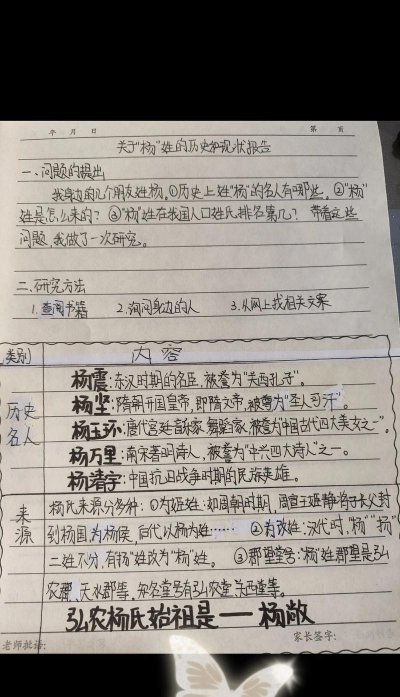 年 月 日 第 页
关于"杨"姓的历史和现状报告
一、问题的提出
我身边的几个朋友姓杨。①历史上姓"杨"的名人有哪些。②"杨"
姓是怎么来的？③"杨"姓在我国人口姓氏排名第几？带着这些
问题，我做了一次研究。
二、研究方法
1.查阅书籍 2.询问身边的人 3.从网上找相关文案
类别 内容
历史名人
杨震：东汉时期的名臣，被誉为"关西孔子"。
杨坚：隋朝开国皇帝，即隋文帝，被尊为"圣人可汗"。
杨玉环：唐代宫廷音乐家、舞蹈家，被誉为中国古代四大美女之一"。
杨万里：南宋著名诗人，被誉为"中兴四大诗人"之一。
杨靖宇：中国抗日战争时期的民族英雄。
来源
杨氏来源分多种：①为姬姓：如周朝时期，周宣王姬静将子长父封
到杨国为杨侯，后代以杨为姓…… ②为改姓：汉代时，"杨""扬"
二姓不分，有扬"姓改为"杨"姓。 ③郡望堂号："杨"姓郡望是弘
农郡、天水郡等，知名堂号有弘农堂、关西堂等。
弘农杨氏始祖是——杨敞
老师批语： 家长签字：